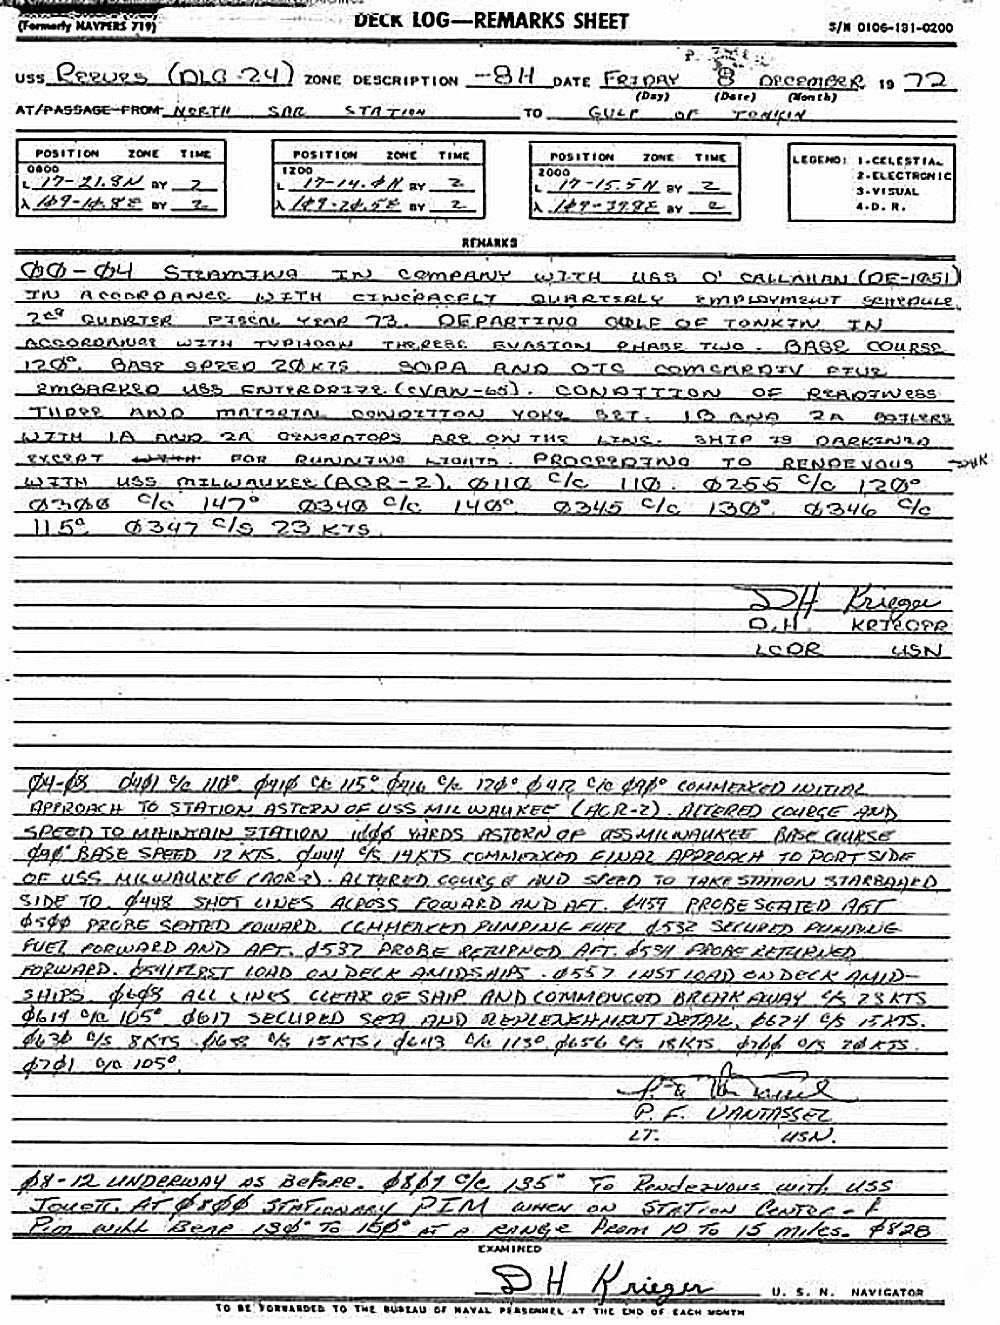 (Formerly NAVPERS 719)
DECK LOG—REMARKS SHEET
S/N 0106-131-0200
USS REEVES (DLG-24) ZONE DESCRIPTION -8H DATE FRIDAY 8 DECEMBER 19 72
(Day) (Date) (Month)
AT/PASSAGE FROM NORTH SAR STATION TO GULF OF TONKIN
POSITION ZONE TIME
0800
L 17-21.8N BY 2
λ BY 2
POSITION ZONE TIME
1200
L 17-14.0N BY 2
λ 109-20.5E BY 2
POSITION ZONE TIME
2000
L 17-15.5N BY 2
λ 109-39.8E BY 2
LEGEND: 1-CELESTIAL
2-ELECTRONIC
3-VISUAL
4-D. R.
REMARKS
00-04 STEAMING IN COMPANY WITH USS O'CALLAHAN (DE-1051)
IN ACCORDANCE WITH CINCPACFLT QUARTERLY EMPLOYMENT SCHEDULE,
2nd QUARTER FISCAL YEAR 73. DEPARTING GULF OF TONKIN IN
ACCORDANCE WITH TYPHOON THERESE EVASION PHASE TWO. BASE COURSE
120°. BASE SPEED 20 KTS. SOPA AND OTC COMCARDIV FIVE
EMBARKED USS ENTERPRIZE (CVAN-65). CONDITION OF READINESS
THREE AND MATERIAL CONDITION YOKE SET. 1B AND 2A BOILERS
WITH 1A AND 2A GENERATORS ARE ON THE LINE. SHIP IS DARKENED
EXCEPT WITH FOR RUNNING LIGHTS. PROCEEDING TO RENDEVOUS DHK
WITH USS MILWAUKEE (AOR-2). 0110 C/C 110. 0255 C/C 120°
0300 C/C 147° 0340 C/C 140° 0345 C/C 130°. 0346 C/C
115° 0347 C/S 23 KTS.
DH Krieger
D.H. KRIEGER
LCDR USN
04-08 0401 C/C 110°. 0410 C/C 115° 0416 C/C 120° 0417 C/C 090° COMMENCED INITIAL
APPROACH TO STATION ASTERN OF USS MILWAUKEE (AOR-2). ALTERED COURSE AND
SPEED TO MAINTAIN STATION 1000 YARDS ASTERN OF USS MILWAUKEE BASE COURSE
090° BASE SPEED 12 KTS. 0444 C/S 14 KTS COMMENCED FINAL APPROACH TO PORT SIDE
OF USS MILWAUKEE (AOR-2). ALTERED COURSE AND SPEED TO TAKE STATION STARBOARD
SIDE TO. 0448 SHOT LINES ACROSS FOWARD AND AFT. 0459 PROBE SEATED AFT
0500 PROBE SEATED FOWARD. COMMENCED PUMPING FUEL 0532 SECURED PUMPING
FUEL FORWARD AND AFT. 0537 PROBE RETURNED AFT. 0539 PROBE RETURNED
FORWARD. 0541 FIRST LOAD ON DECK AMIDSHIPS. 0557 LAST LOAD ON DECK AMID-
SHIPS. 0608 ALL LINES CLEAR OF SHIP AND COMMENCED BREAK AWAY C/S 23 KTS
0614 C/C 105° 0617 SECURED SEA AND REPLENISHMENT DETAIL. 0624 C/S 15 KTS.
0630 C/S 8 KTS 0638 C/S 15 KTS, 0643 C/C 113° 0656 C/S 18 KTS 0700 C/S 20 KTS.
0701 C/C 105°.
P. F. VANTASSEL
LT. USN.
08-12 UNDERWAY AS BEFORE. 0807 C/C 135° TO RENDEZVOUS WITH USS
JOUETT. AT 0800 STATIONARY PIM WHEN ON STATION CENTER - E
PIM WILL BEAR 130° TO 150° AT A RANGE FROM 10 TO 15 MILES. 0828
EXAMINED
DH Krieger U. S. N. NAVIGATOR
TO BE FORWARDED TO THE BUREAU OF NAVAL PERSONNEL AT THE END OF EACH MONTH